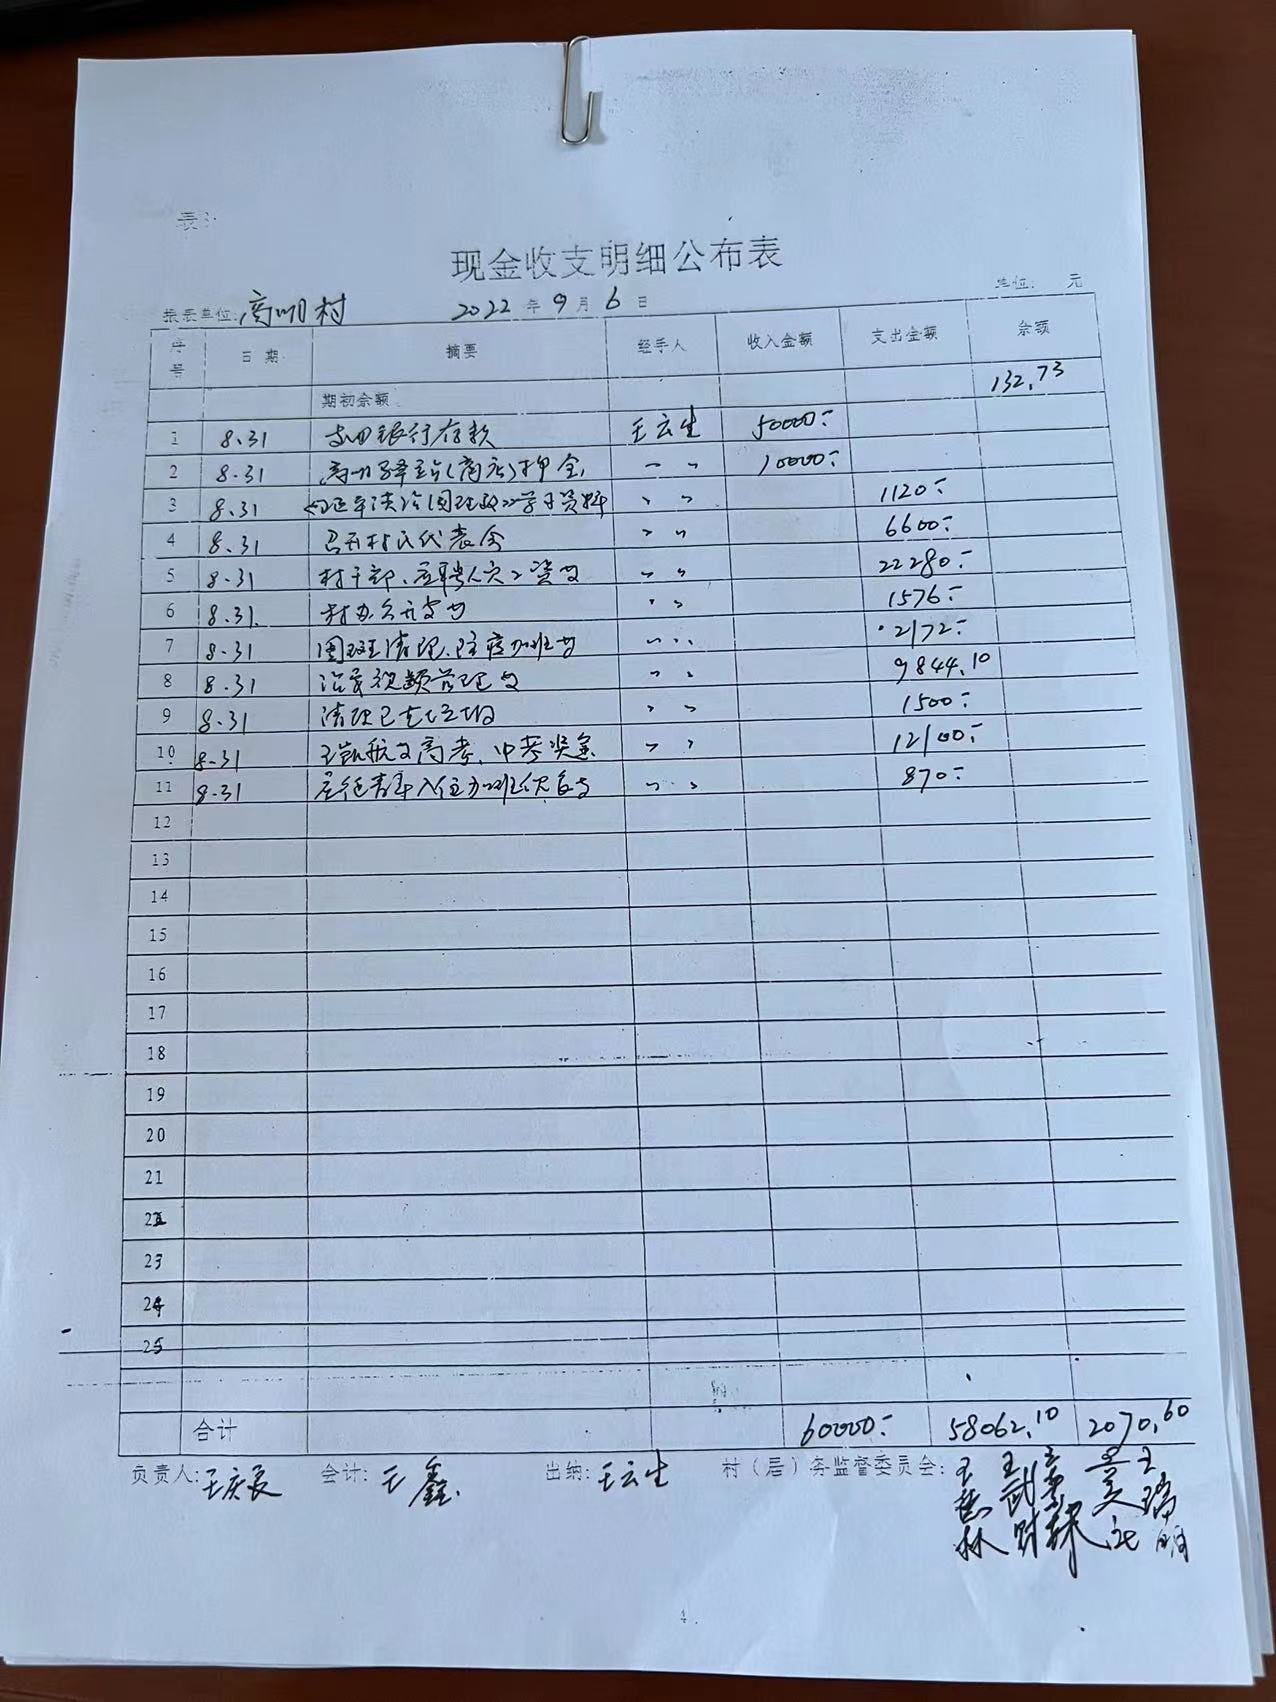 表
现金收支明细公布表
报表单位: 高明村 2022 年 9 月 6 日 单位: 元
序号 日期 摘要 经手人 收入金额 支出金额 余额
期初余额 132.73
1 8.31 支回银行存款 王云生 50000-
2 8.31 高明驿站(商店)押金 〃 10000-
3 8.31 学习资料 〃 1120-
4 8.31 召开村民代表会 〃 6600-
5 8.31 村干部、应聘人员工资 〃 22280-
6 8.31 村办公开支 〃 1576-
7 8.31 图斑清理、防疫加班 〃 2172-
8 8.31 视频管理 〃 9844.10
9 8.31 清理垃圾 〃 1500-
10 8.31 王凯航 高考、中考奖金 〃 12100-
11 8.31 青年入伍 〃 870-
12
13
14
15
16
17
18
19
20
21
22
23
24
25
合计 60000- 58062.10 2070.60
负责人: 王庆良 会计: 王鑫 出纳: 王云生 村(居)务监督委员会: 王武财 王瑞明